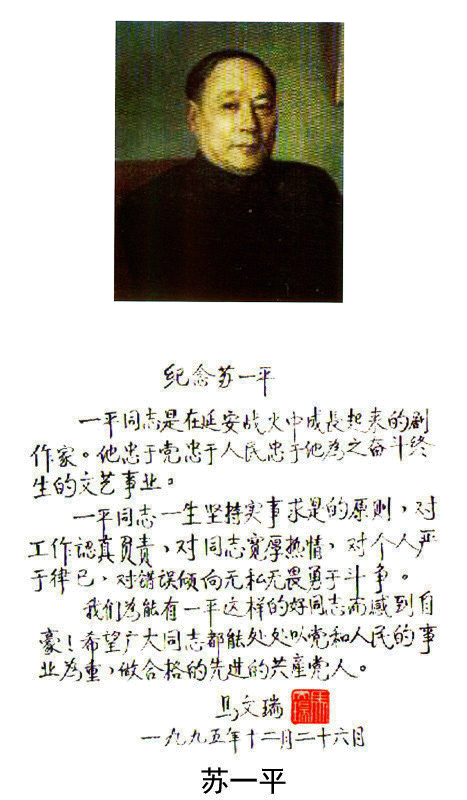 纪念苏一平
一平同志是在延安战火中成長起来的剧
作家。他忠于党忠于人民忠于他為之奋斗终
生的文艺事业。
一平同志一生坚持实事求是的原则，对
工作認真负责，对同志宽厚热情，对个人严
于律己，对錯误倾向无私无畏勇于斗争。
我们為能有一平这样的好同志而感到自
豪！希望广大同志都能处处以党和人民的事
业為重，做合格的先进的共產党人。
马文瑞
一九九五年十二月二十六日
苏一平